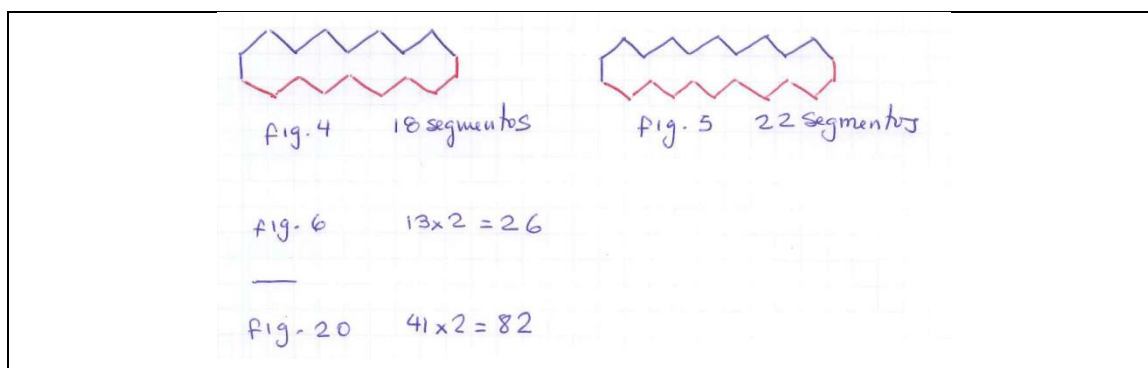 fig. 4 18 segmentos
fig. 5 22 segmentos
fig. 6 13x2 = 26
fig. 20 41x2 = 82